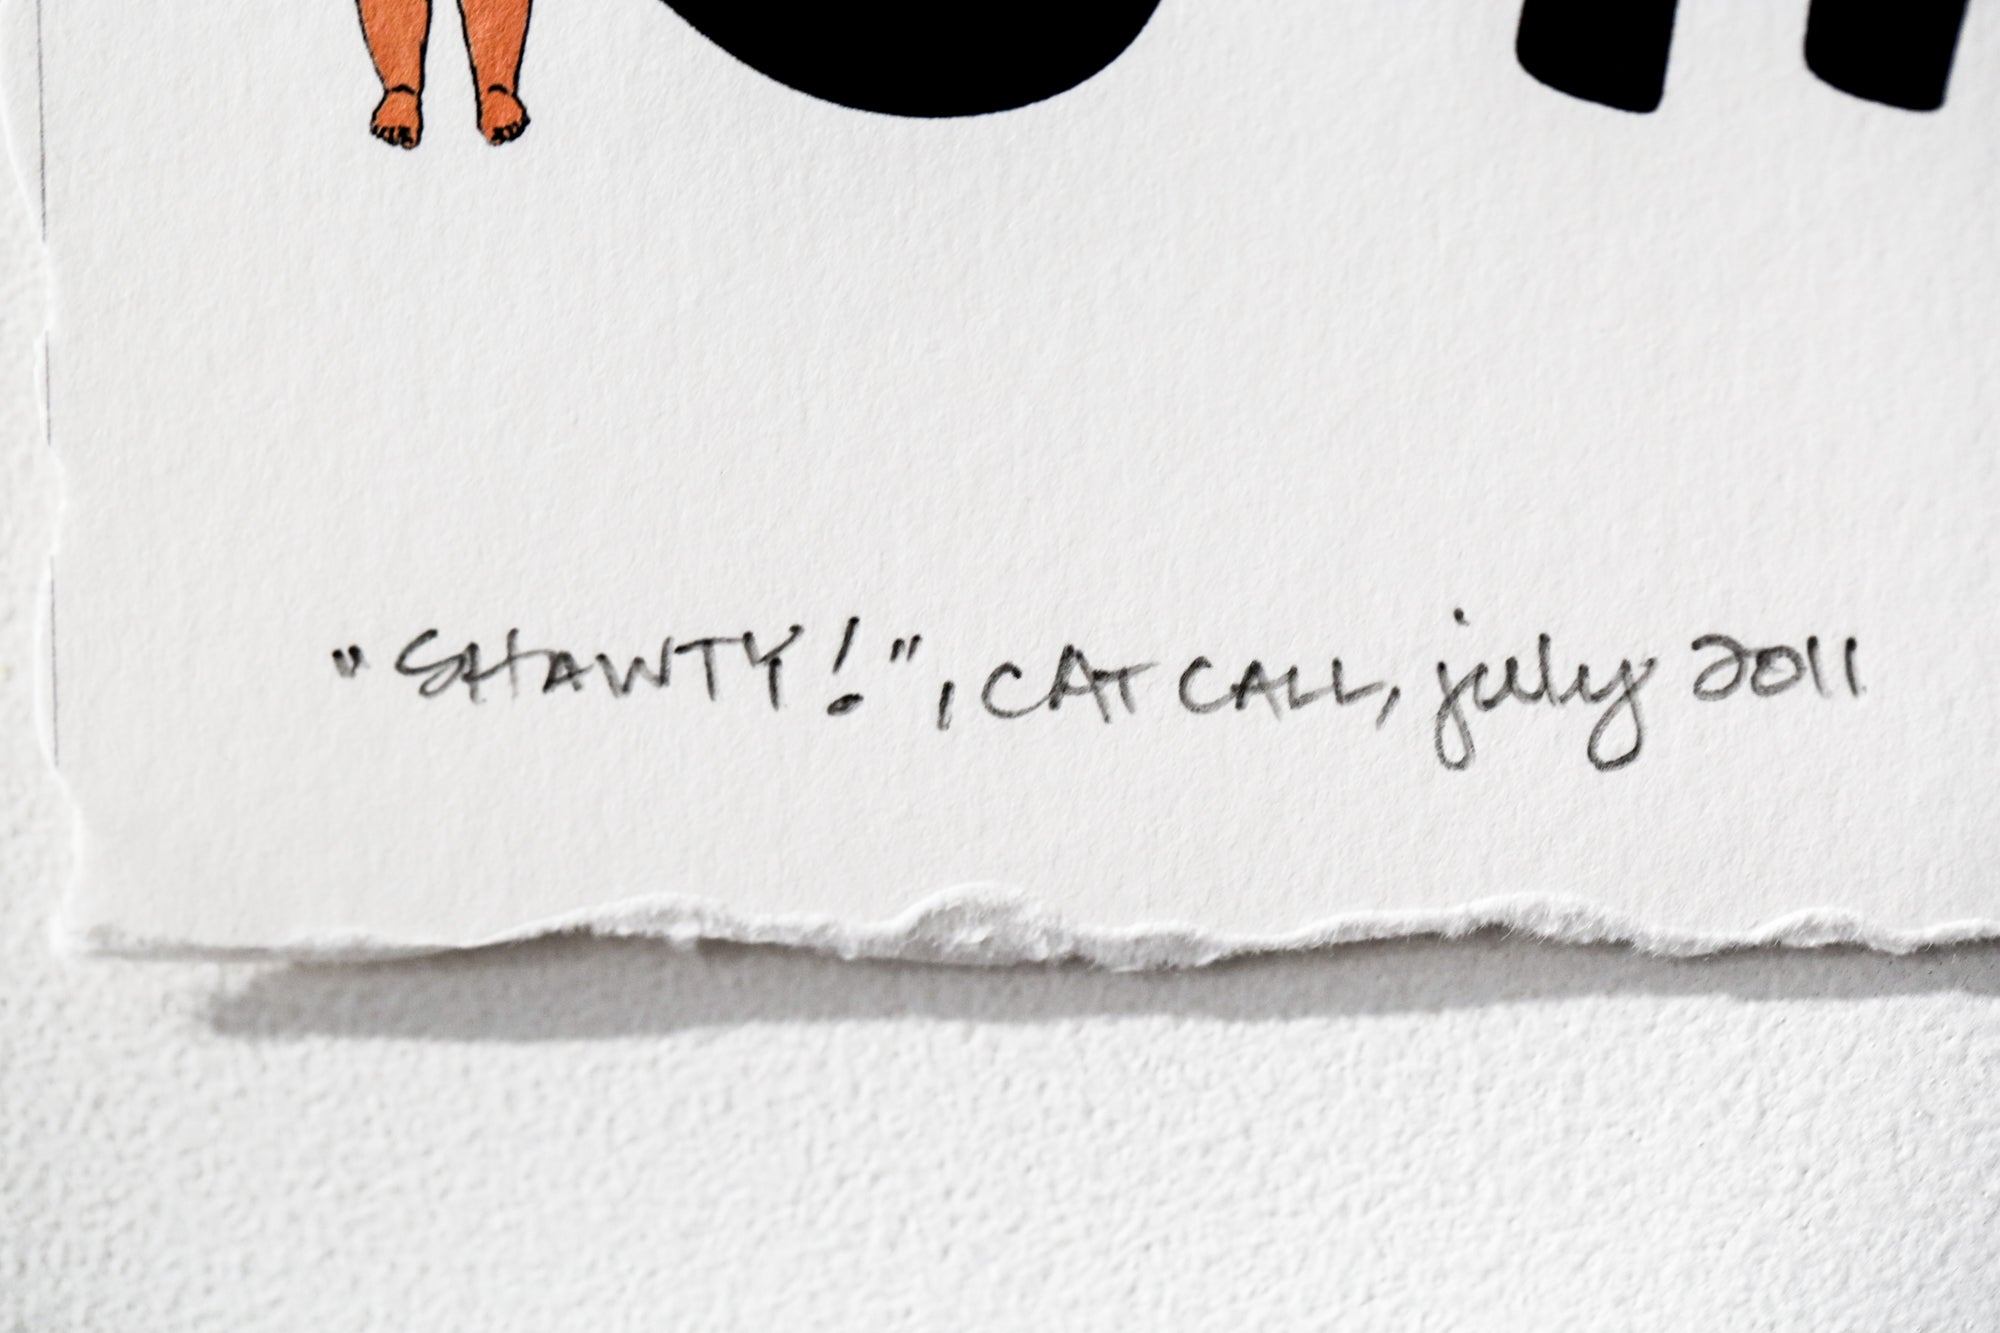 "SHAWTY!", CAT CALL, july 2011